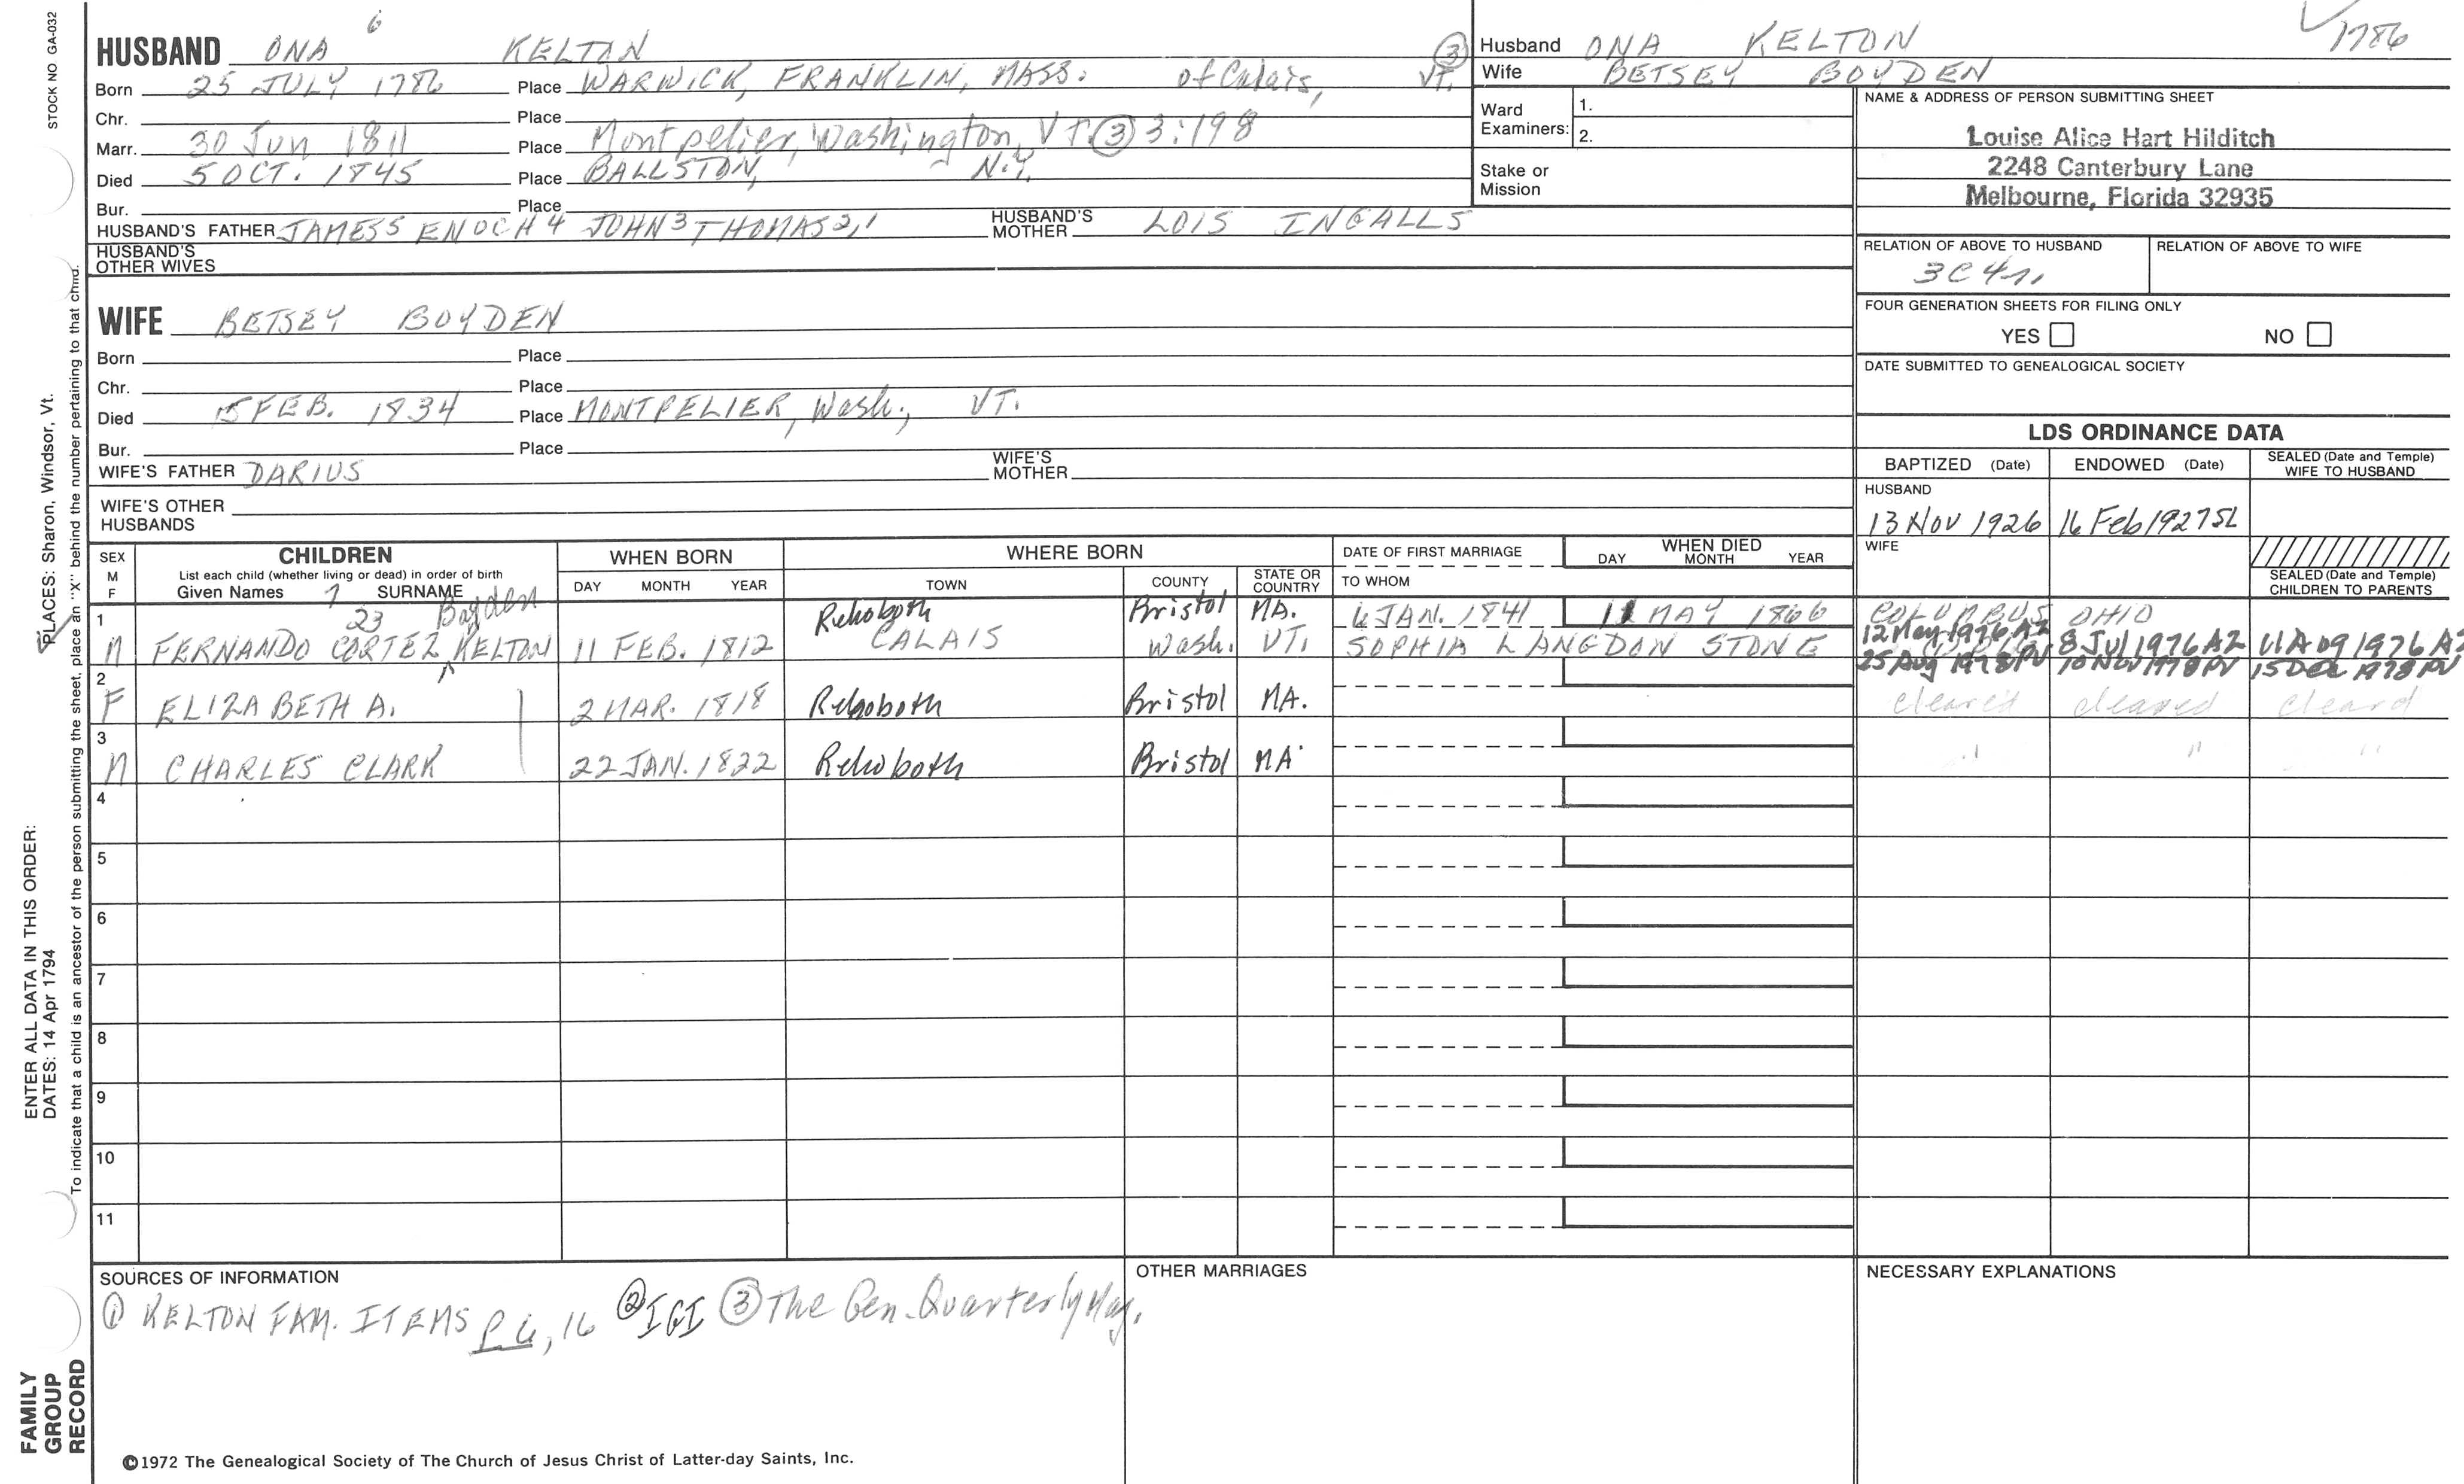 STOCK NO GA-032
PLACES: Sharon, Windsor, Vt.
ENTER ALL DATA IN THIS ORDER:
DATES: 14 Apr 1794
To indicate that a child is an ancestor of the person submitting the sheet, place an "X" behind the number pertaining to that child.
FAMILY
GROUP
RECORD
6
HUSBAND ONA KELTON
Born 25 JULY 1786 Place WARWICK, FRANKLIN, MASS. of Calais, VT. ③
Chr. Place
Marr. 30 Jun 1811 Place Montpelier, Washington, VT. ③ 3:198
Died 5 OCT. 1845 Place BALLSTON, N.Y.
Bur. Place
HUSBAND'S FATHER JAMES5 ENOCH4 JOHN3 THOMAS2,1 HUSBAND'S MOTHER LOIS INGALLS
HUSBAND'S
OTHER WIVES
WIFE BETSEY BOYDEN
Born Place
Chr. Place
Died 15 FEB. 1834 Place MONTPELIER, Wash., VT.
Bur. Place
WIFE'S FATHER DARIUS WIFE'S MOTHER
WIFE'S OTHER
HUSBANDS
1786
Husband ONA KELTON
Wife BETSEY BOYDEN
Ward
Examiners: 1.
2.
Stake or
Mission
NAME & ADDRESS OF PERSON SUBMITTING SHEET
Louise Alice Hart Hilditch
2248 Canterbury Lane
Melbourne, Florida 32935
RELATION OF ABOVE TO HUSBAND RELATION OF ABOVE TO WIFE
3C4r,
FOUR GENERATION SHEETS FOR FILING ONLY
YES NO
DATE SUBMITTED TO GENEALOGICAL SOCIETY
LDS ORDINANCE DATA
BAPTIZED (Date) ENDOWED (Date) SEALED (Date and Temple) WIFE TO HUSBAND
HUSBAND
13 Nov 1926 16 Feb 1927 SL
WIFE
SEALED (Date and Temple)
CHILDREN TO PARENTS
SEX M F CHILDREN WHEN BORN WHERE BORN DATE OF FIRST MARRIAGE WHEN DIED
List each child (whether living or dead) in order of birth DAY MONTH YEAR TOWN COUNTY STATE OR COUNTRY TO WHOM DAY MONTH YEAR
Given Names 7 SURNAME
1 23 Boyden Rehoboth Bristol MA. 6 JAN. 1841 11 MAY 1866 COLUMBUS OHIO
M FERNANDO CORTEZ KELTON 11 FEB. 1812 CALAIS Wash. VT. SOPHIA LANGDON STONE 12 May 1976 AZ 8 Jul 1976 AZ 11 Aug 1976 AZ
25 Aug 1978 PV 10 Nov 1978 PV 15 Dec 1978 PV
2
F ELIZABETH A. 2 MAR. 1818 Rehoboth Bristol MA. cleared cleared cleard
3
M CHARLES CLARK 22 JAN. 1822 Rehoboth Bristol MA " " "
4
5
6
7
8
9
10
11
SOURCES OF INFORMATION
① KELTON FAM. ITEMS P 6, 16 ② IGI ③ The Gen. Quarterly Mag.
OTHER MARRIAGES
NECESSARY EXPLANATIONS
©1972 The Genealogical Society of The Church of Jesus Christ of Latter-day Saints, Inc.